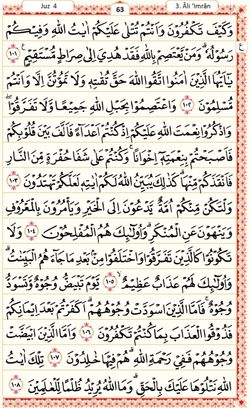 Juz 4 63 3. Āli 'Imrān
وَكَيْفَ تَكْفُرُوْنَ وَاَنْتُمْ تُتْلٰى عَلَيْكُمْ اٰيٰتُ اللّٰهِ وَفِيْكُمْ
رَسُوْلُهٗ ؕ وَمَنْ يَّعْتَصِمْ بِاللّٰهِ فَقَدْ هُدِيَ اِلٰى صِرَاطٍ مُّسْتَقِيْمٍ ۝١٠١
يٰۤاَيُّهَا الَّذِيْنَ اٰمَنُوا اتَّقُوا اللّٰهَ حَقَّ تُقٰتِهٖ وَلَا تَمُوْتُنَّ اِلَّا وَاَنْتُمْ
مُّسْلِمُوْنَ ۝١٠٢ وَاعْتَصِمُوْا بِحَبْلِ اللّٰهِ جَمِيْعًا وَّلَا تَفَرَّقُوْا ۪
وَاذْكُرُوْا نِعْمَتَ اللّٰهِ عَلَيْكُمْ اِذْ كُنْتُمْ اَعْدَآءً فَاَلَّفَ بَيْنَ قُلُوْبِكُمْ
فَاَصْبَحْتُمْ بِنِعْمَتِهٖۤ اِخْوَانًا ۚ وَكُنْتُمْ عَلٰى شَفَا حُفْرَةٍ مِّنَ النَّارِ
فَاَنْقَذَكُمْ مِّنْهَا ؕ كَذٰلِكَ يُبَيِّنُ اللّٰهُ لَكُمْ اٰيٰتِهٖ لَعَلَّكُمْ تَهْتَدُوْنَ ۝١٠٣
وَلْتَكُنْ مِّنْكُمْ اُمَّةٌ يَّدْعُوْنَ اِلَى الْخَيْرِ وَيَاْمُرُوْنَ بِالْمَعْرُوْفِ
وَيَنْهَوْنَ عَنِ الْمُنْكَرِ ؕ وَاُولٰٓئِكَ هُمُ الْمُفْلِحُوْنَ ۝١٠٤ وَلَا
تَكُوْنُوْا كَالَّذِيْنَ تَفَرَّقُوْا وَاخْتَلَفُوْا مِنْۢ بَعْدِ مَا جَآءَهُمُ الْبَيِّنٰتُ ؕ
وَاُولٰٓئِكَ لَهُمْ عَذَابٌ عَظِيْمٌ ۝١٠٥ يَّوْمَ تَبْيَضُّ وُجُوْهٌ وَّتَسْوَدُّ
وُجُوْهٌ ۚ فَاَمَّا الَّذِيْنَ اسْوَدَّتْ وُجُوْهُهُمْ ۫ اَكَفَرْتُمْ بَعْدَ اِيْمَانِكُمْ
فَذُوْقُوا الْعَذَابَ بِمَا كُنْتُمْ تَكْفُرُوْنَ ۝١٠٦ وَاَمَّا الَّذِيْنَ ابْيَضَّتْ
وُجُوْهُهُمْ فَفِيْ رَحْمَةِ اللّٰهِ ؕ هُمْ فِيْهَا خٰلِدُوْنَ ۝١٠٧ تِلْكَ اٰيٰتُ
اللّٰهِ نَتْلُوْهَا عَلَيْكَ بِالْحَقِّ ؕ وَمَا اللّٰهُ يُرِيْدُ ظُلْمًا لِّلْعٰلَمِيْنَ ۝١٠٨